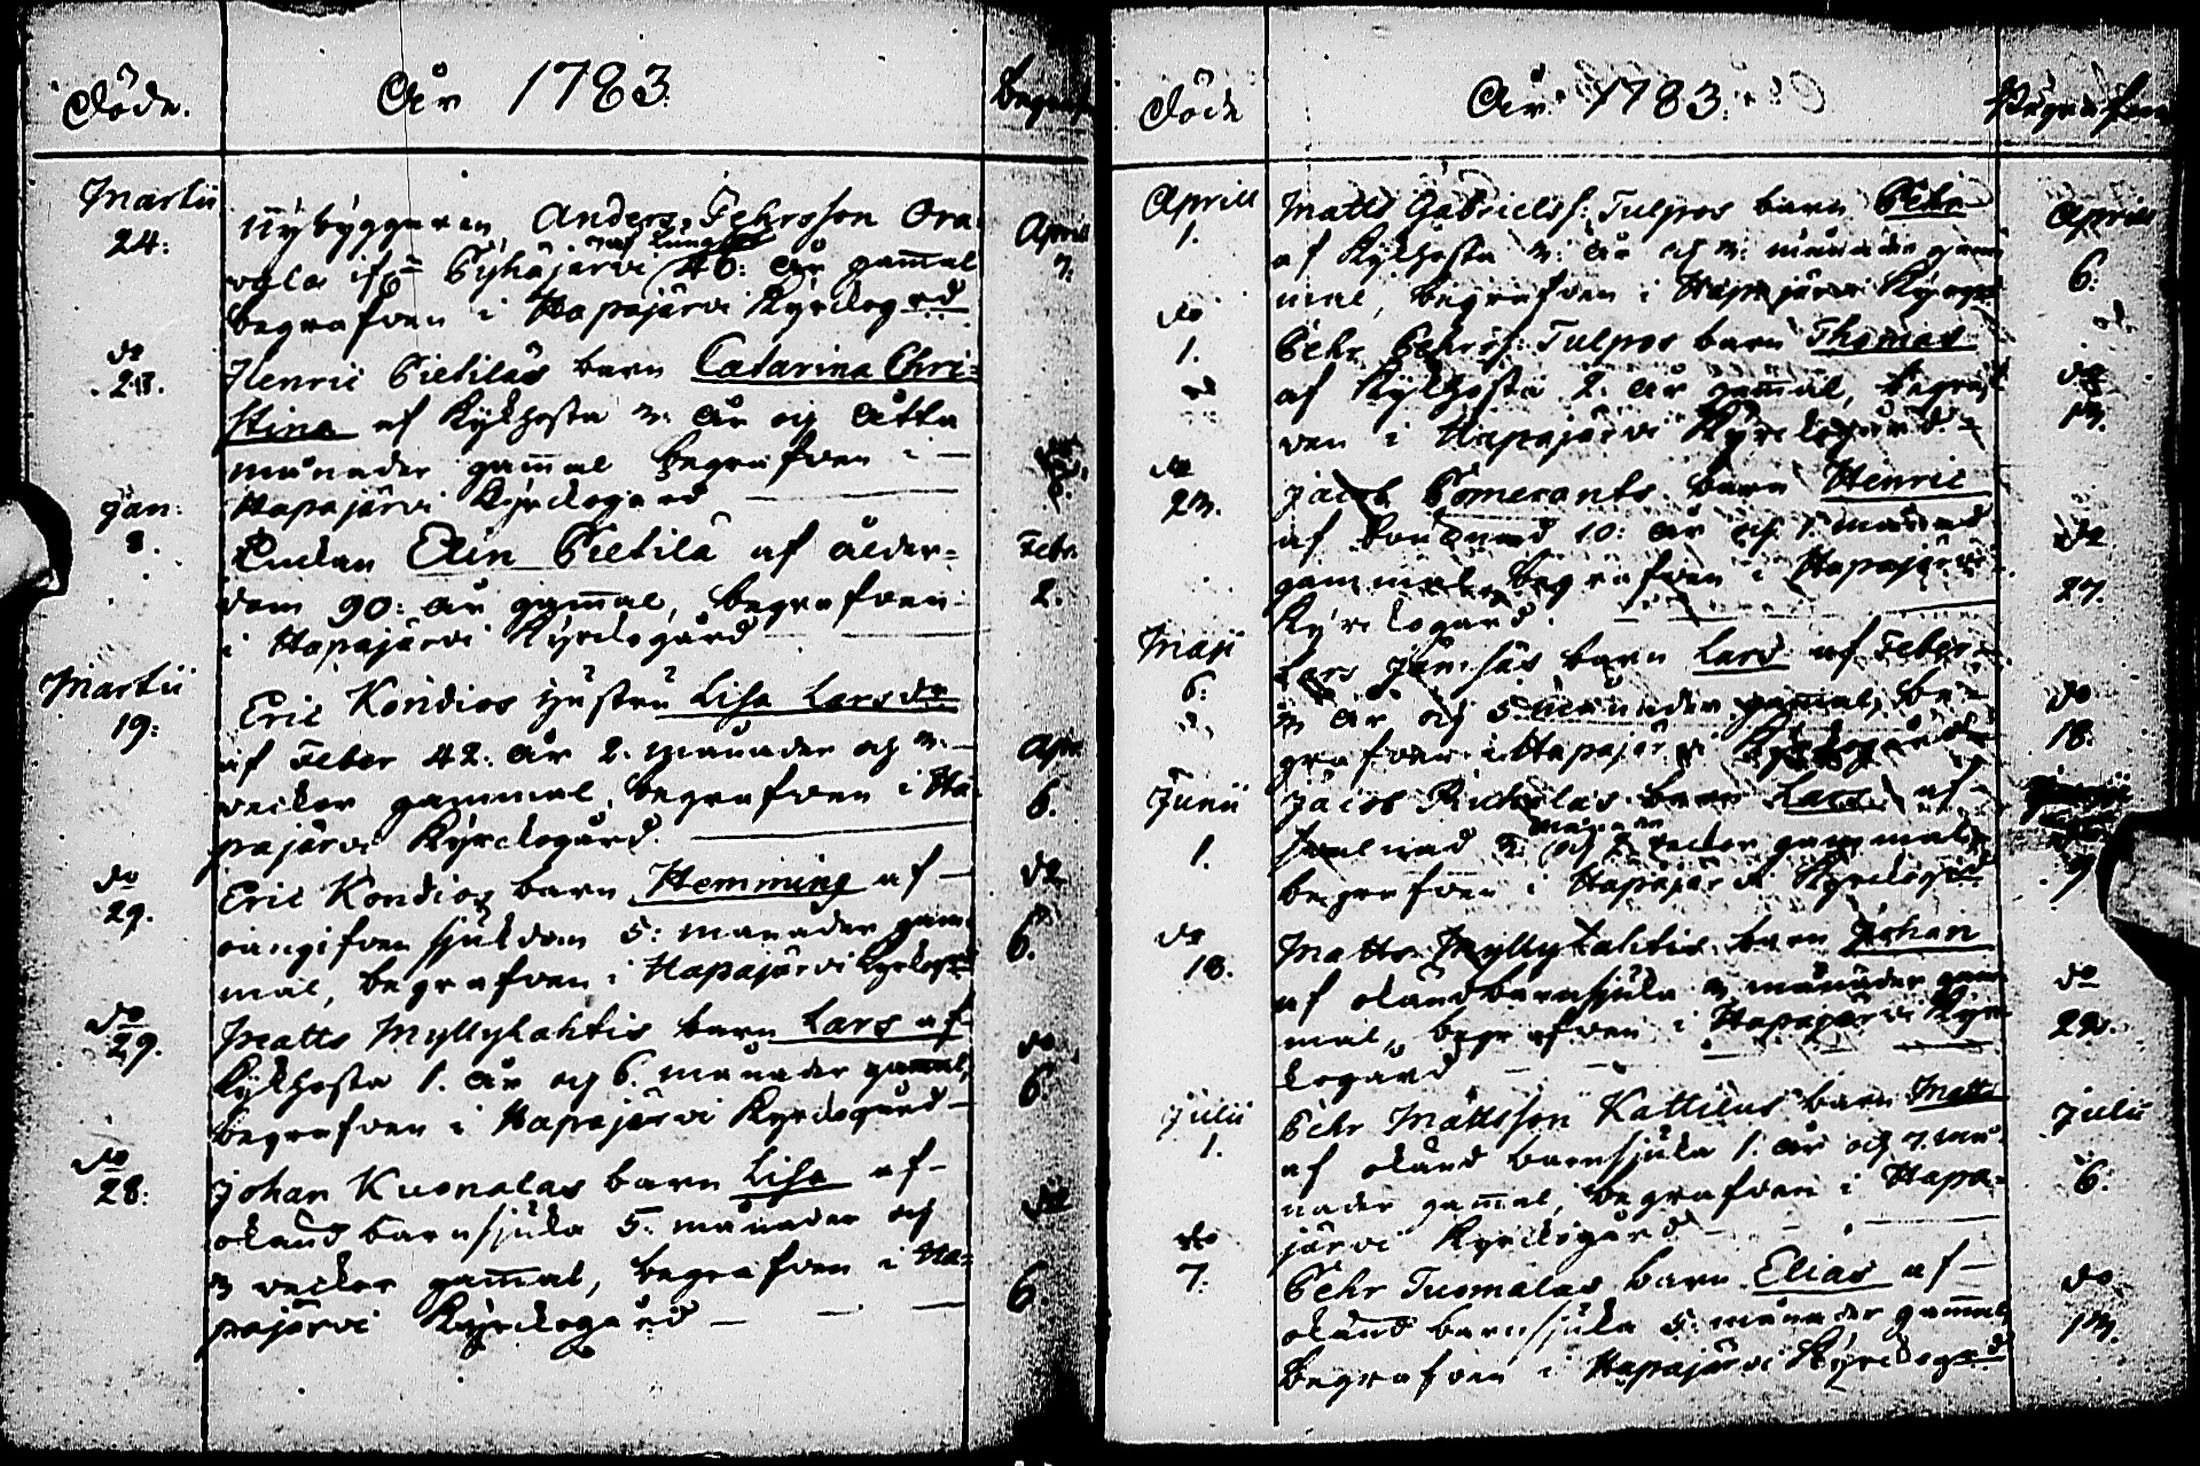 Döde.
År 1783.
Martii
24:
Nybyggaren Anders Pehrsson Ora=
af lungsot
vala ifrn Pyhäjärvi 46: år gam̄al
begrafven i Hapajärvi Kyrckogrd
Aprill
7:
do
28.
Henric Pietiläs barn Catarina Chri=
stina af Kykhosta 3. år och åtta
månader gam̄al begrafven i —
Hapajärvi Kyrckogård
Jan:
8.
Enckan Elin Pietilä af ålder=
dom 90: år gam̄al, begrafven
i Hapajärvi Kyrckogård
Febr.
2.
Martii
19:
Eric Kondios hustru Lisa Larsdr
af Feber 42. år 2. månader och 3.
veckor gammal, begrafven i Ha=
pajärvi Kyrckogård.
Apr.
6.
do
29.
Eric Kondios barn Hemming af —
oangifven sjukdom 5: månader gam=
mal, begrafven i Hapajärvi Kyrckogrd
do
6.
do
29.
Matts Myllylahtis barn Lars af
Kykhosta 1. år och 6. månader gam̄al,
begrafven i Hapajärvi Kyrckogård —
do
6.
do
28:
Johan Kuonalas barn Lisa af —
okänd barnsjuka 5. månader och
3 veckor gam̄al, begrafven i Ha=
pajärvi Kyrckogård —
do
6.
Döde
År 1783.
Begrafven
Aprill
1.
Matts Gabrielss: Tulpos barn Pehr
af Kykhosta 3: år och 3: månader gam=
mal, begrafven i Hapajärvi Kyrckogrd
Aprill
6.
do
1.
Pehr Pehrss: Tulpos barn Thomas
af Kykhosta 2. år gam̄al, begraf=
ven i Hapajärvi Kyrckogård
do
13.
do
23.
Jacob Pomerants barn Henric
af 10: år och 1. månad
gammal, begrafven i Hapajärvi
Kyrckogård.
do
27.
Maji
6:
Lars Jämsäs barn Lars af Feber
3 år och 5 månader gam̄al, be=
grafven i Hapajärvi Kyrckogård
do
18.
Junii
1.
Jacob barn Lars af
månader
2. och veckor gammal,
begrafven i Hapajärvi Kyrckogrd
9
do
18.
Matts Myllylahtis barn Johan
af okänd barnsjuka 3 månader gam=
mal, begrafven i Hapajärvi Kyr=
ckogård
do
22.
Julii
1.
Pehr Mattsson Kattilus barn Matts
af okänd barnsjuka 1. år och 7. må=
nader gam̄al, begrafven i Hapa=
järvi Kyrckogård
Julii
6.
do
7.
Pehr Tuomalas barn Elias af —
okänd barnsjuka 5: månader gam̄al,
begrafven i Hapajärvi Kyrckogrd
do
13.